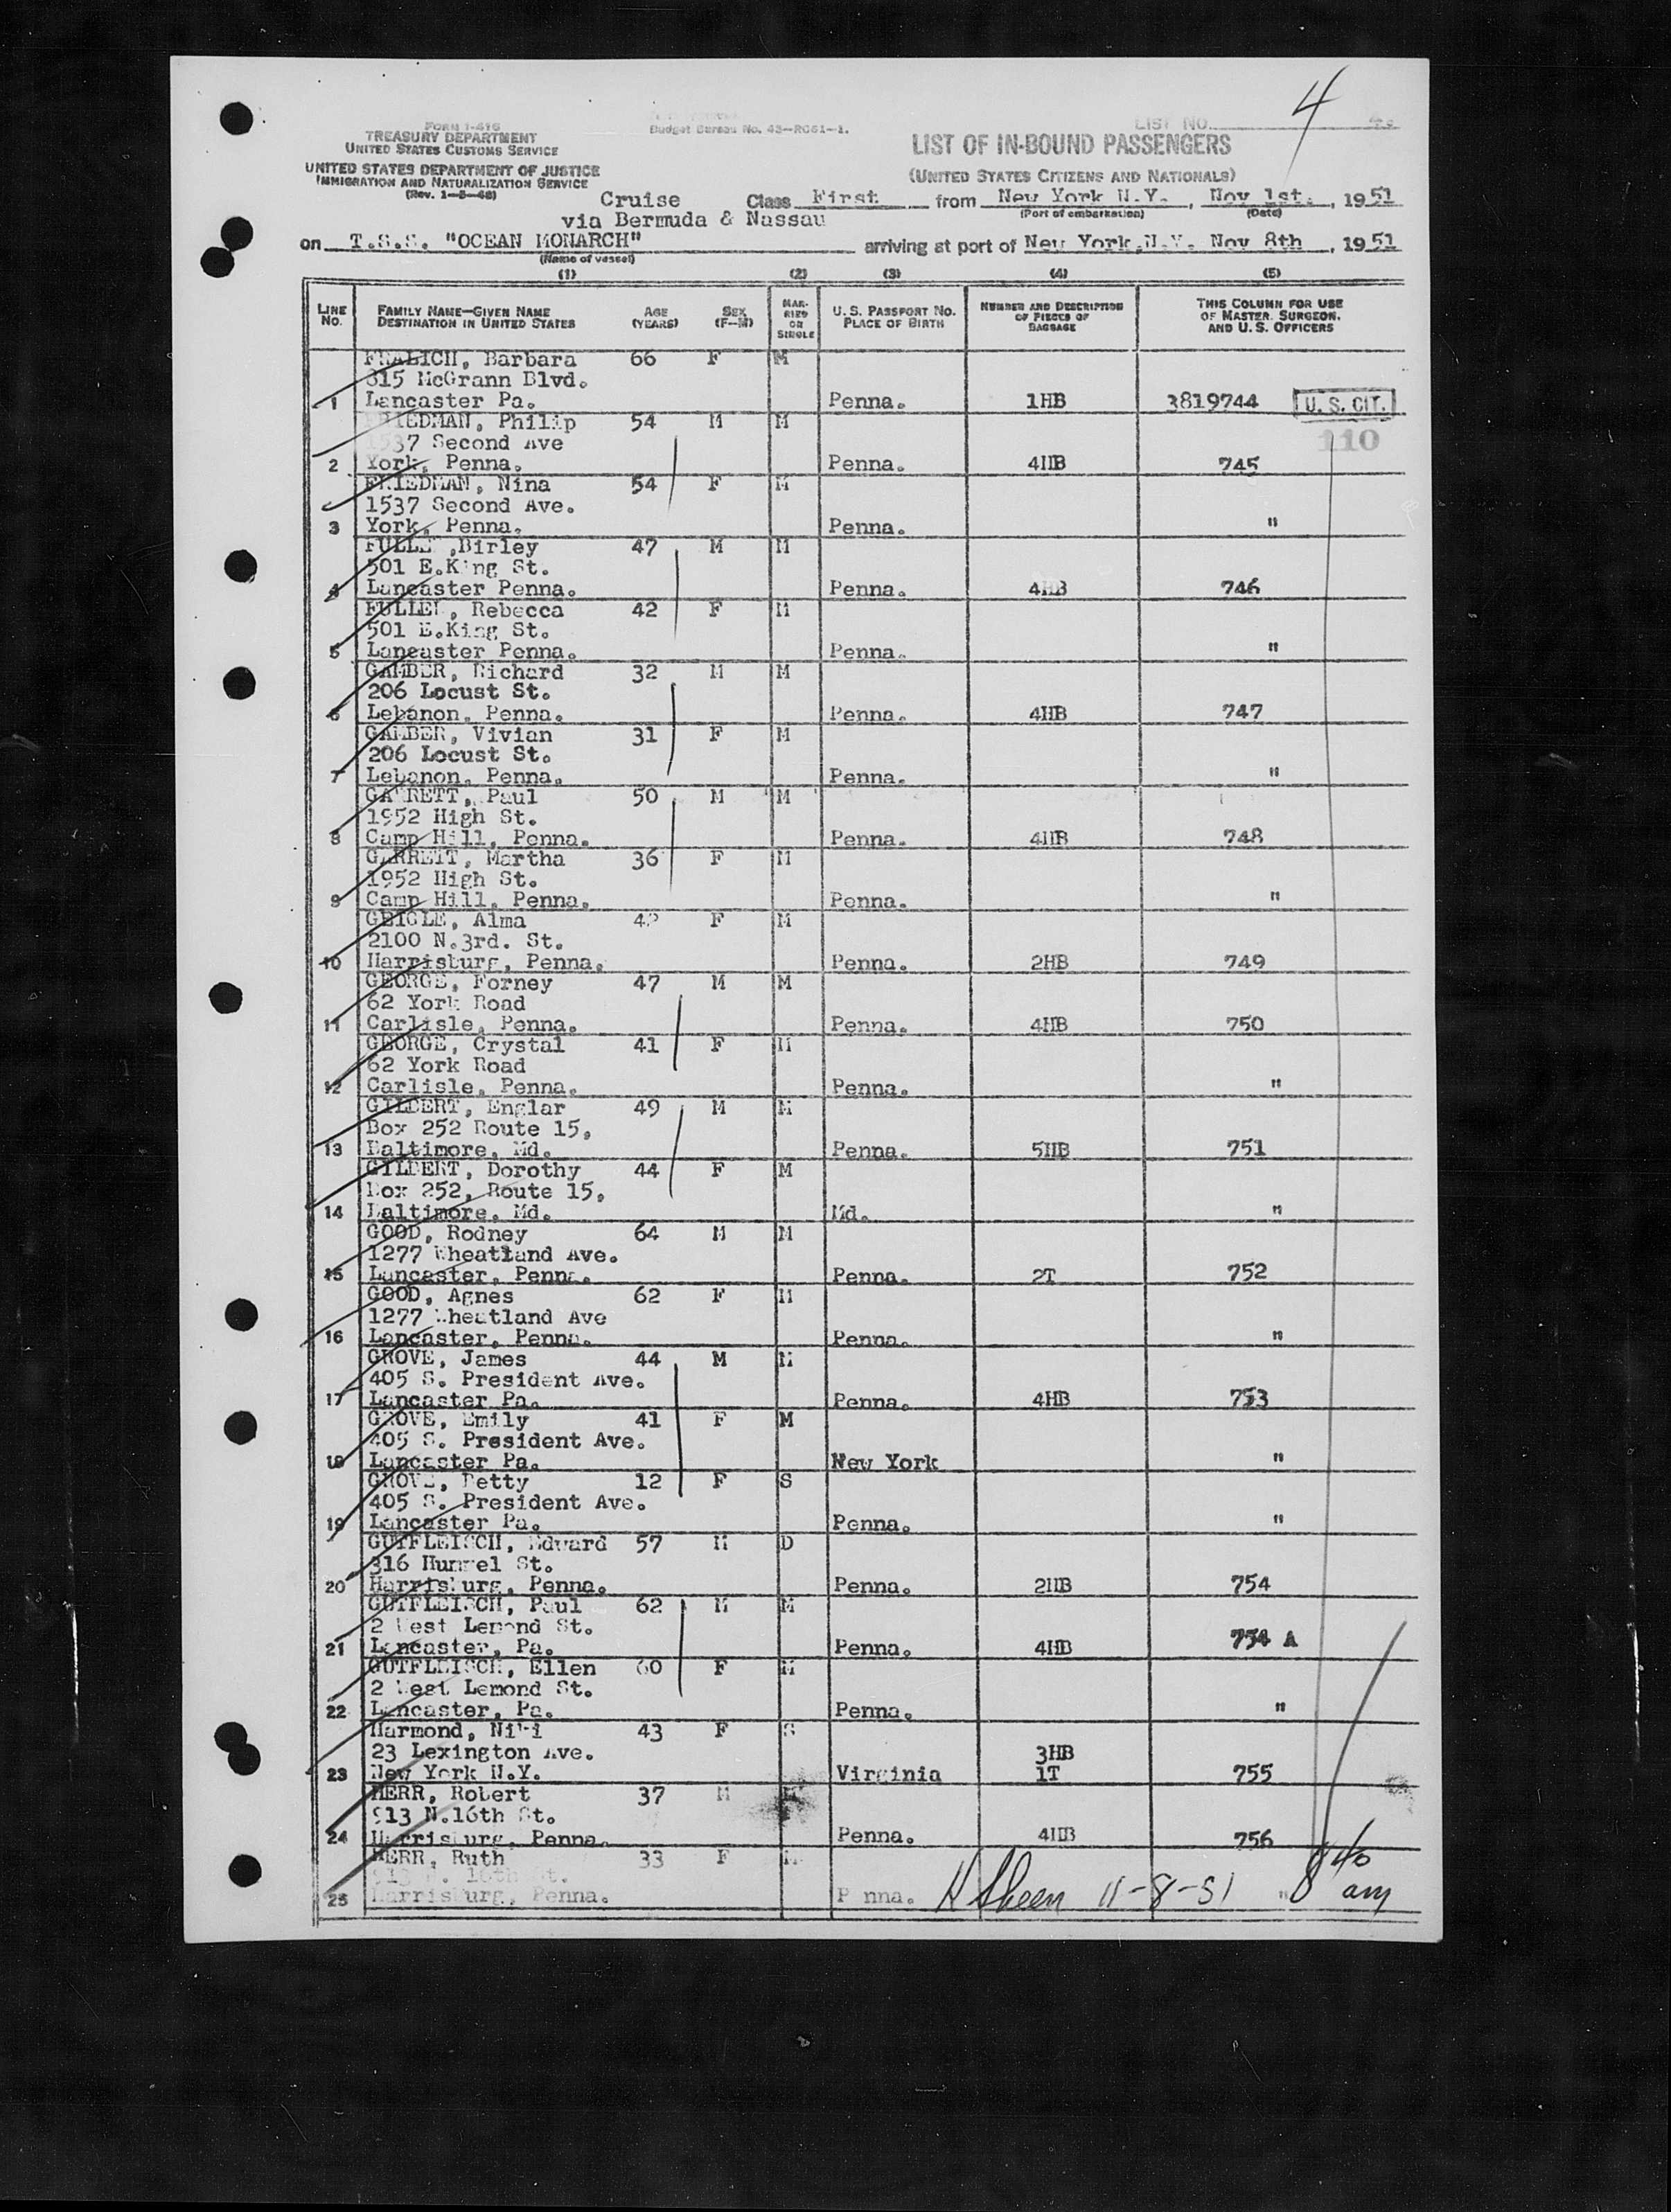 4
FORM I-416
TREASURY DEPARTMENT
UNITED STATES CUSTOMS SERVICE
UNITED STATES DEPARTMENT OF JUSTICE
IMMIGRATION AND NATURALIZATION SERVICE
(Rev. 1-5-48)
Budget Bureau No. 43-R061-1.
LIST NO.
LIST OF IN-BOUND PASSENGERS
(UNITED STATES CITIZENS AND NATIONALS)
Cruise Class First from New York N.Y., Nov 1st., 1951
via Bermuda & Nassau (Port of embarkation) (Date)
on T.S.S. "OCEAN MONARCH" arriving at port of New York,N.Y. Nov 8th, 1951
(Name of vessel)
(1) (2) (3) (4) (5)
LINE No. FAMILY NAME—GIVEN NAME DESTINATION IN UNITED STATES AGE (YEARS) SEX (F—M) MARRIED OR SINGLE U.S. PASSPORT NO. PLACE OF BIRTH NUMBER AND DESCRIPTION OF PIECES OF BAGGAGE THIS COLUMN FOR USE OF MASTER, SURGEON, AND U. S. OFFICERS
FRALICH, Barbara 66 F M
315 McGrann Blvd.
1 Lancaster Pa. Penna. 1HB 3819744 U. S. CIT.
FRIEDMAN, Philip 54 M M 110
1537 Second Ave
2 York, Penna. Penna. 4HB 745
FRIEDMAN, Nina 54 F M
1537 Second Ave.
3 York, Penna. Penna. "
FULLE ,Birley 47 M M
501 E.King St.
4 Lancaster Penna. Penna. 4HB 746
FULLE , Rebecca 42 F M
501 E.King St.
5 Lancaster Penna. Penna. "
GAMBER, Richard 32 M M
206 Locust St.
6 Lebanon, Penna. Penna. 4HB 747
GAMBER, Vivian 31 F M
206 Locust St.
7 Lebanon, Penna. Penna. "
GARRETT, Paul 50 M M
1952 High St.
8 Camp Hill, Penna. Penna. 4HB 748
GARRETT, Martha 36 F M
1952 High St.
9 Camp Hill, Penna. Penna. "
GEIGLE, Alma F M
2100 N.3rd. St.
10 Harrisburg, Penna. Penna. 2HB 749
GEORGE, Forney 47 M M
62 York Road
11 Carlisle, Penna. Penna. 4HB 750
GEORGE, Crystal 41 F M
62 York Road
12 Carlisle, Penna. Penna. "
GILBERT, Englar 49 M M
Box 252 Route 15,
13 Baltimore, Md. Penna. 5HB 751
GILBERT, Dorothy 44 F M
Box 252, Route 15,
14 Baltimore, Md. Md. "
GOOD, Rodney 64 M M
1277 Wheatland Ave.
15 Lancaster, Penna. Penna. 2T 752
GOOD, Agnes 62 F M
1277 Wheatland Ave
16 Lancaster, Penna. Penna. "
GROVE, James 44 M M
405 S. President Ave.
17 Lancaster Pa. Penna. 4HB 753
GROVE, Emily 41 F M
405 S. President Ave.
18 Lancaster Pa. New York "
GROVE, Betty 12 F S
405 S. President Ave.
19 Lancaster Pa. Penna. "
GUTFLEISCH, Edward 57 M D
316 Hummel St.
20 Harrisburg, Penna. Penna. 2HB 754
GUTFLEISCH, Paul 62 M M
2 West Lemond St.
21 Lancaster, Pa. Penna. 4HB 754 A
GUTFLEISCH, Ellen 60 F M
2 West Lemond St.
22 Lancaster, Pa. Penna. "
Harmond, Niki 43 F S
23 Lexington Ave. 3HB
23 New York N.Y. Virginia 1T 755
HERR, Robert 37 M
913 N.16th St.
24 Harrisburg, Penna. Penna. 4HB 756
HERR, Ruth 33 F M
913 N. 16th St.
25 Harrisburg, Penna. Penna. "
K Sheen 11-8-51 8 40 am